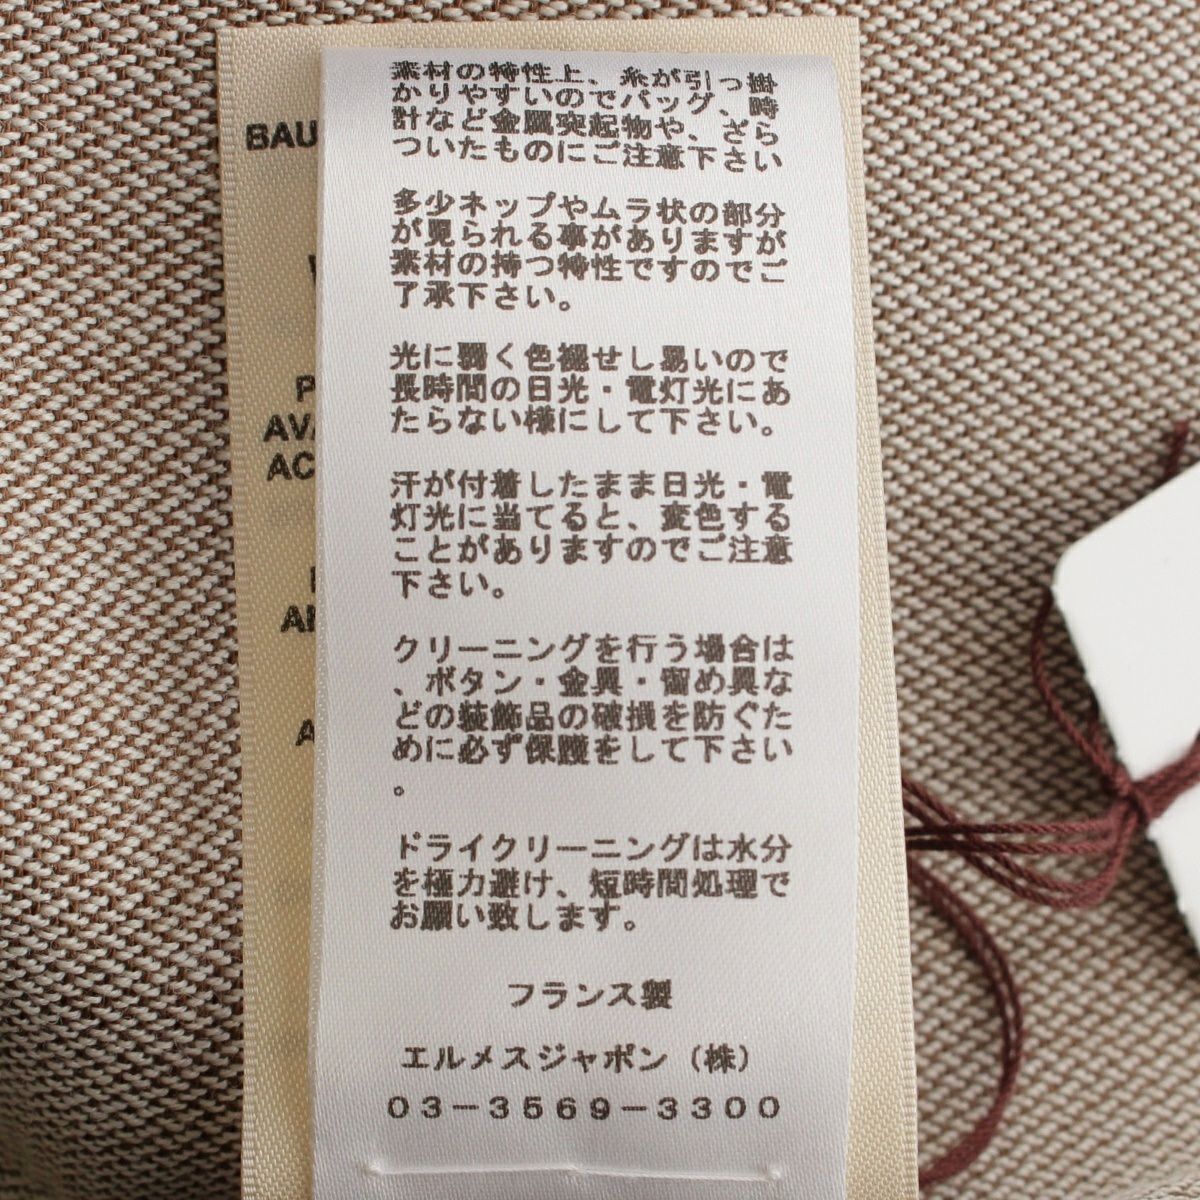 素材の特性上、糸が引っ掛
かりやすいのでバッグ、時
計など金属突起物や、ざら
ついたものにご注意下さい
多少ネップやムラ状の部分
が見られる事がありますが
素材の持つ特性ですのでご
了承下さい。
光に弱く色褪せし易いので
長時間の日光・電灯光にあ
たらない様にして下さい。
汗が付着したまま日光・電
灯光に当てると、変色する
ことがありますのでご注意
下さい。
クリーニングを行う場合は
、ボタン・金具・留め具な
どの装飾品の破損を防ぐた
めに必ず保護をして下さい
。
ドライクリーニングは水分
を極力避け、短時間処理で
お願い致します。
フランス製
エルメスジャポン（株）
03-3569-3300
BAU
AVA
AC